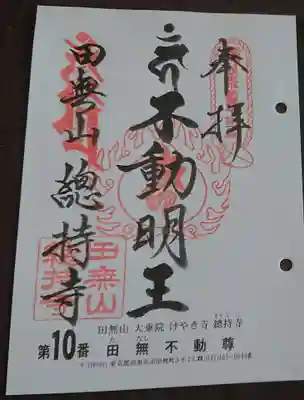 奉拝
不動明王
田無山
總持寺
田無山
總持寺
田無山 大乗院 けやき寺 總持寺
第10番 田無不動尊